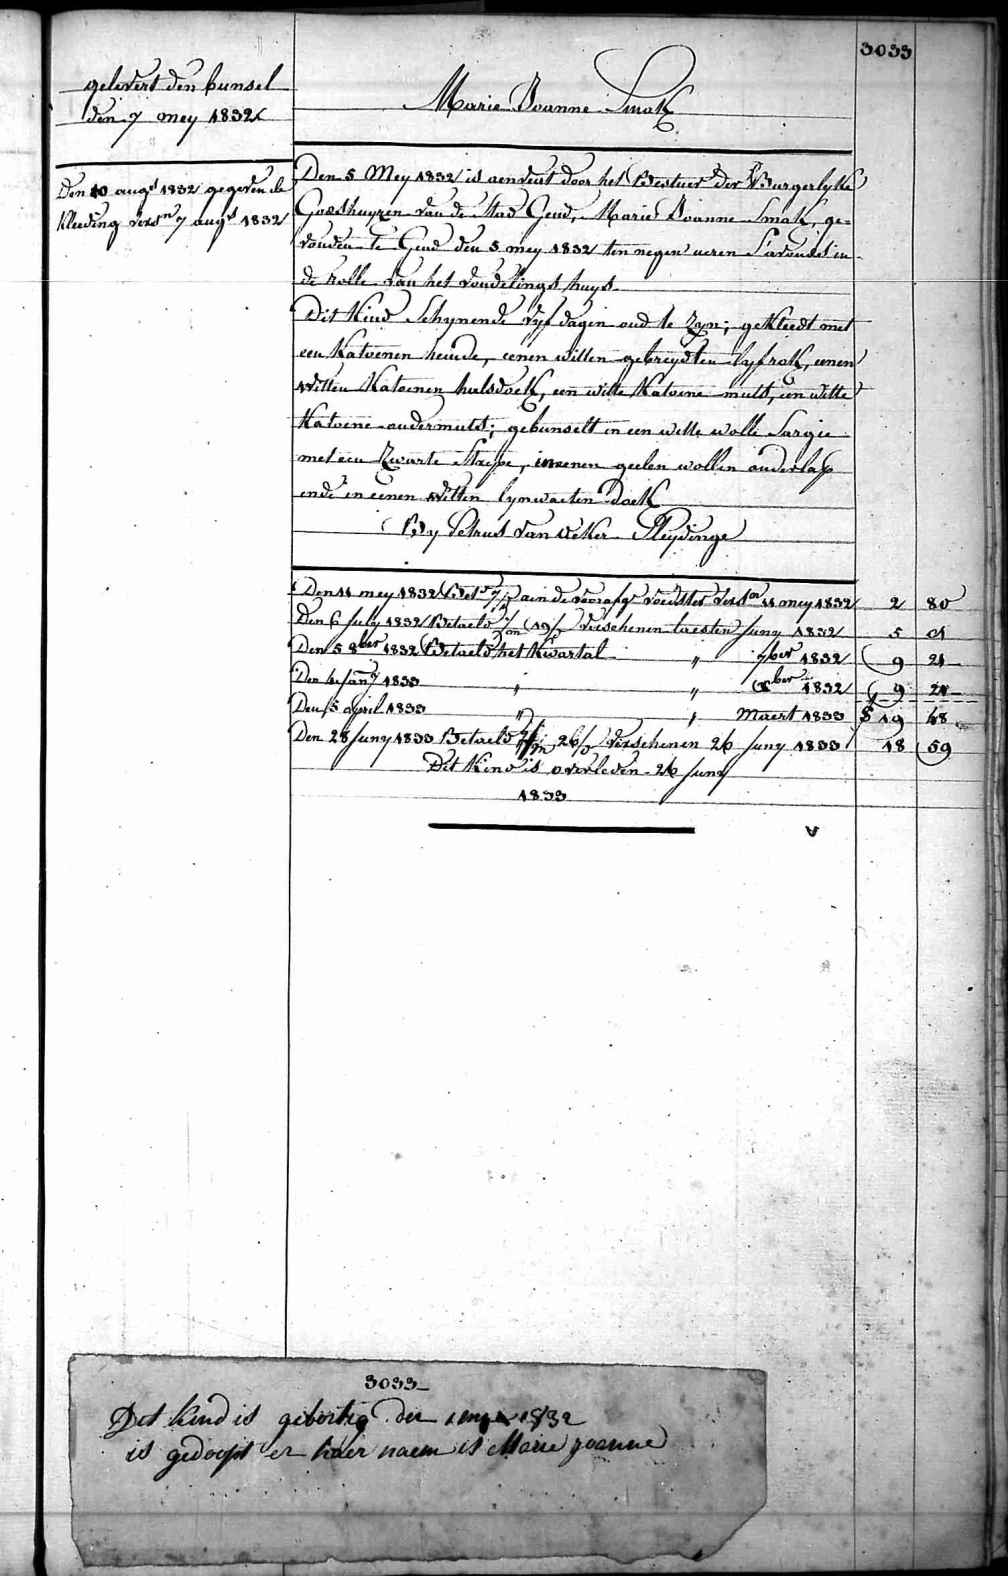 3033
gelevert den bunsel
den 7 mey 1832
Marie Joanne Smak
Den 10 augt 1832 gegeven de
kleeding versn 7 augt 1832
Den 5 Mey 1832 is aenveird door het Bestuer der Burgerlyke
Godshuyzen van de stad Gend, Marie Joanne Smak, ge-
vonden te Gend den 5 mey 1832 ten negen ueren s'avonds in
de rolle van het vondelings huys.
Dit Kind schynende vyf dagen oud te zyn; gekleedt met
een Katoenen hemde, eenen witten gebreydten lyfrok, eenen
witten Katoenen halsdoek, een witte Katoene muts, een witte
Katoene ondermuts; gebunselt in een witte wolle sargie
met een zwarte strepe, in eenen geelen wollen onderlap
ende in eenen witten lynwaeten Doek
By Petrus van Acker Sleydinge
Den 11 mey 1832 aen de voorafgde voedster 11 mey 1832 2 80
Den 6 July 1832 Betaeld verschenen laesten Juny 1832 5 01
Den 5 8ber 1832 Betaeld het Kwartal " 7ber 1832 9 21
Den 4 Jany 1833 " " xber 1832 9 21
Den 5 april 1833 " " Maert 1833 19 48
Den 28 Juny 1833 Betaeld verschenen 26 Juny 1833 18 59
Dit Kind is overleden 26 Juny
1833
3033
Dit kind is gebortig den 1 mey 1832
is gedoopt er haer naem is Marie joanne